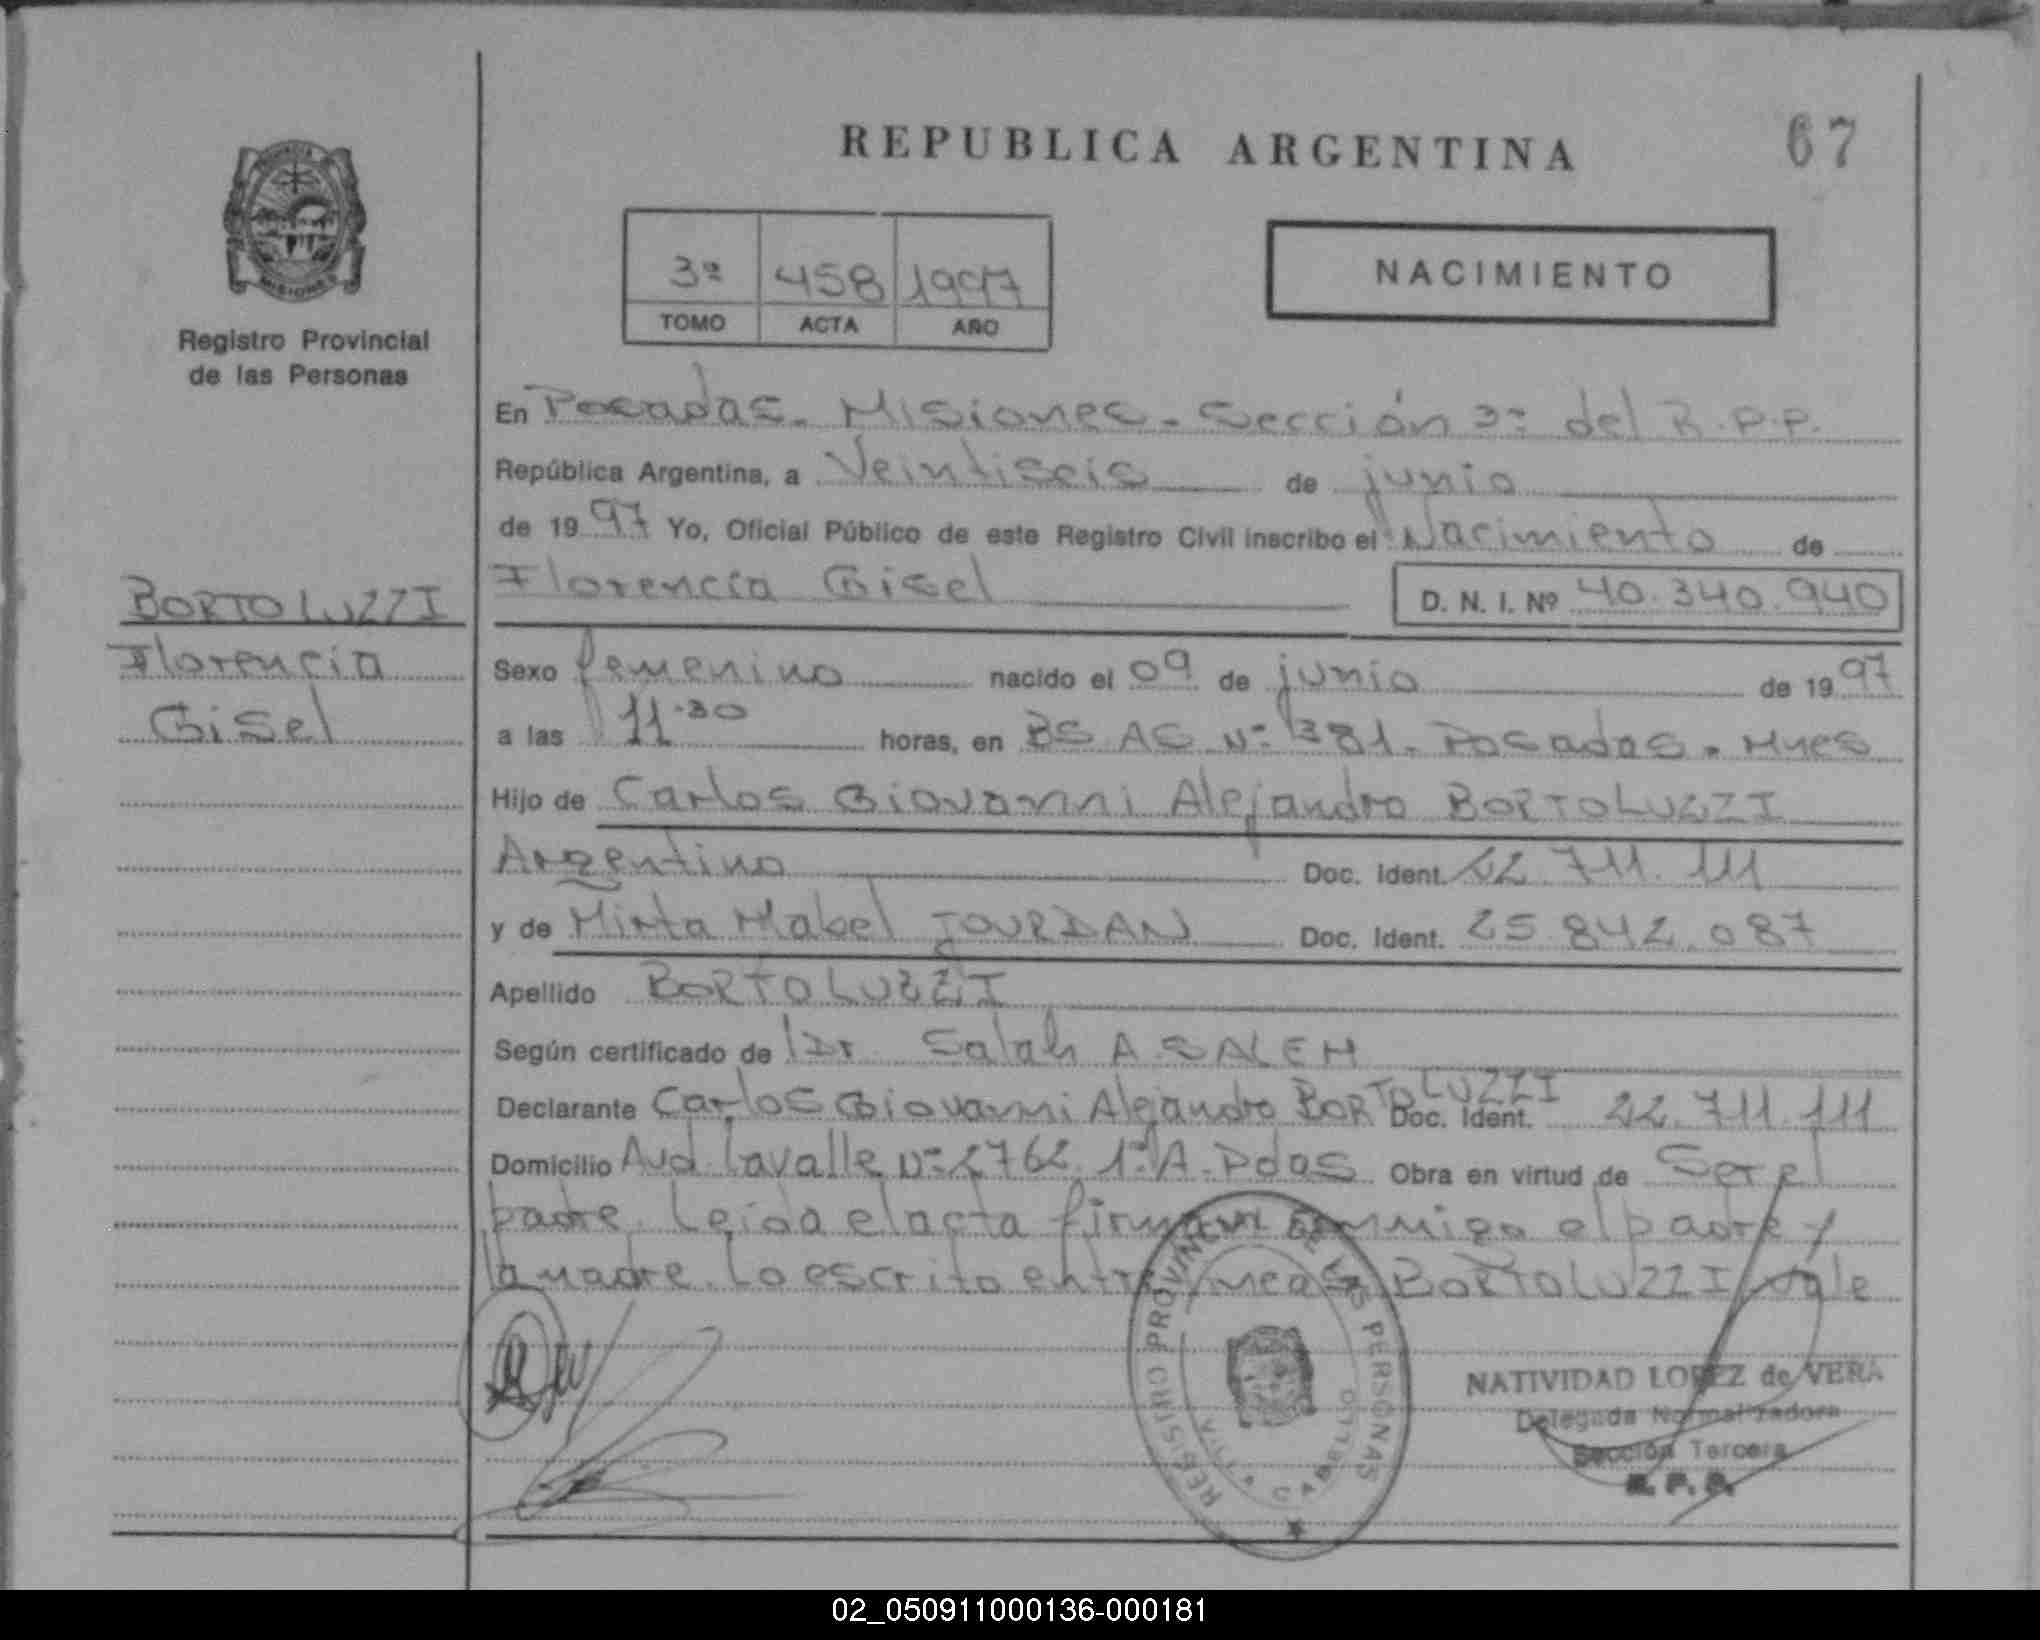 REPUBLICA ARGENTINA
67
MISIONES
Registro Provincial
de las Personas
3ª 458 1997
TOMO ACTA AÑO
NACIMIENTO
En Posadas. Misiones. Sección 3ª del R.P.P.
República Argentina, a Veintiseis de junio
de 1997 Yo, Oficial Público de este Registro Civil inscribo el Nacimiento de
Florencia Gisel
D. N. I. Nº 40.340.940
BORTOLUZZI
Florencia
Gisel
Sexo femenino nacido el 09 de junio de 1997
a las 11.30 horas, en BS AS Nº 381. Posadas. Mnes
Hijo de Carlos Giovanni Alejandro BORTOLUZZI
Argentino Doc. Ident. 22.711.111
y de Mirta Mabel JOURDAN Doc. Ident. 25.842.087
Apellido BORTOLUZZI
Según certificado de Dr. Salah A. SALEH
Declarante Carlos Giovanni Alejandro BORTOLUZZI Doc. Ident. 22.711.111
Domicilio Avd. Lavalle Nº 2762. 1º A. Pdas Obra en virtud de Ser el
padre. Leida el acta firman conmigo el padre y
la madre. Lo escrito entre lineas BORTOLUZZI vale
REGISTRO PROVINCIAL DE LAS PERSONAS
VILLA CABELLO
NATIVIDAD LOPEZ de VERA
Delegada Normalizadora
Sección Tercera
R. P. P.
02_050911000136-000181